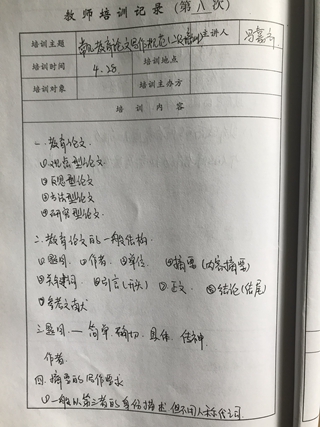 教师培训记录（第八次）
培训主题 常见教育论文写作规范(二次培训) 主讲人
培训时间 4.28 培训地点
培训对象 培训主办方
培训内容
一.教育论文.
①观点型论文
②反思型论文
③方法型论文
④研究型论文
二.教育论文的一般结构.
①题目. ②作者. ③单位. ④摘要(内容摘要)
⑤关键词. ⑥引言(开头) ⑦正文. ⑧结论(结尾)
⑨参考文献
三.题目.—— 简单 确切. 具体 传神
作者.
四.摘要的写作要求
①一般以第三者的身份描述 但不用人称代词.